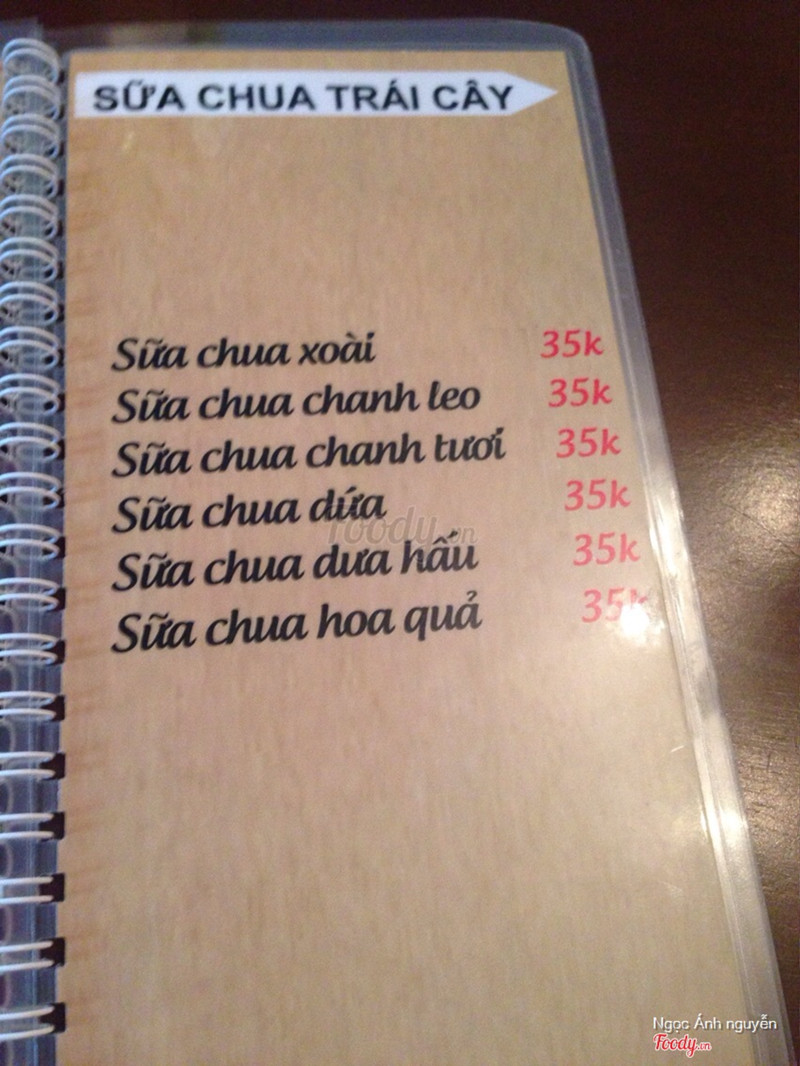 SỮA CHUA TRÁI CÂY
Sữa chua xoài 35k
Sữa chua chanh leo 35k
Sữa chua chanh tươi 35k
Sữa chua dứa 35k
foody.vn
Sữa chua dưa hấu 35k
Sữa chua hoa quả 35k
Ngọc Ánh nguyễn
Foody.vn